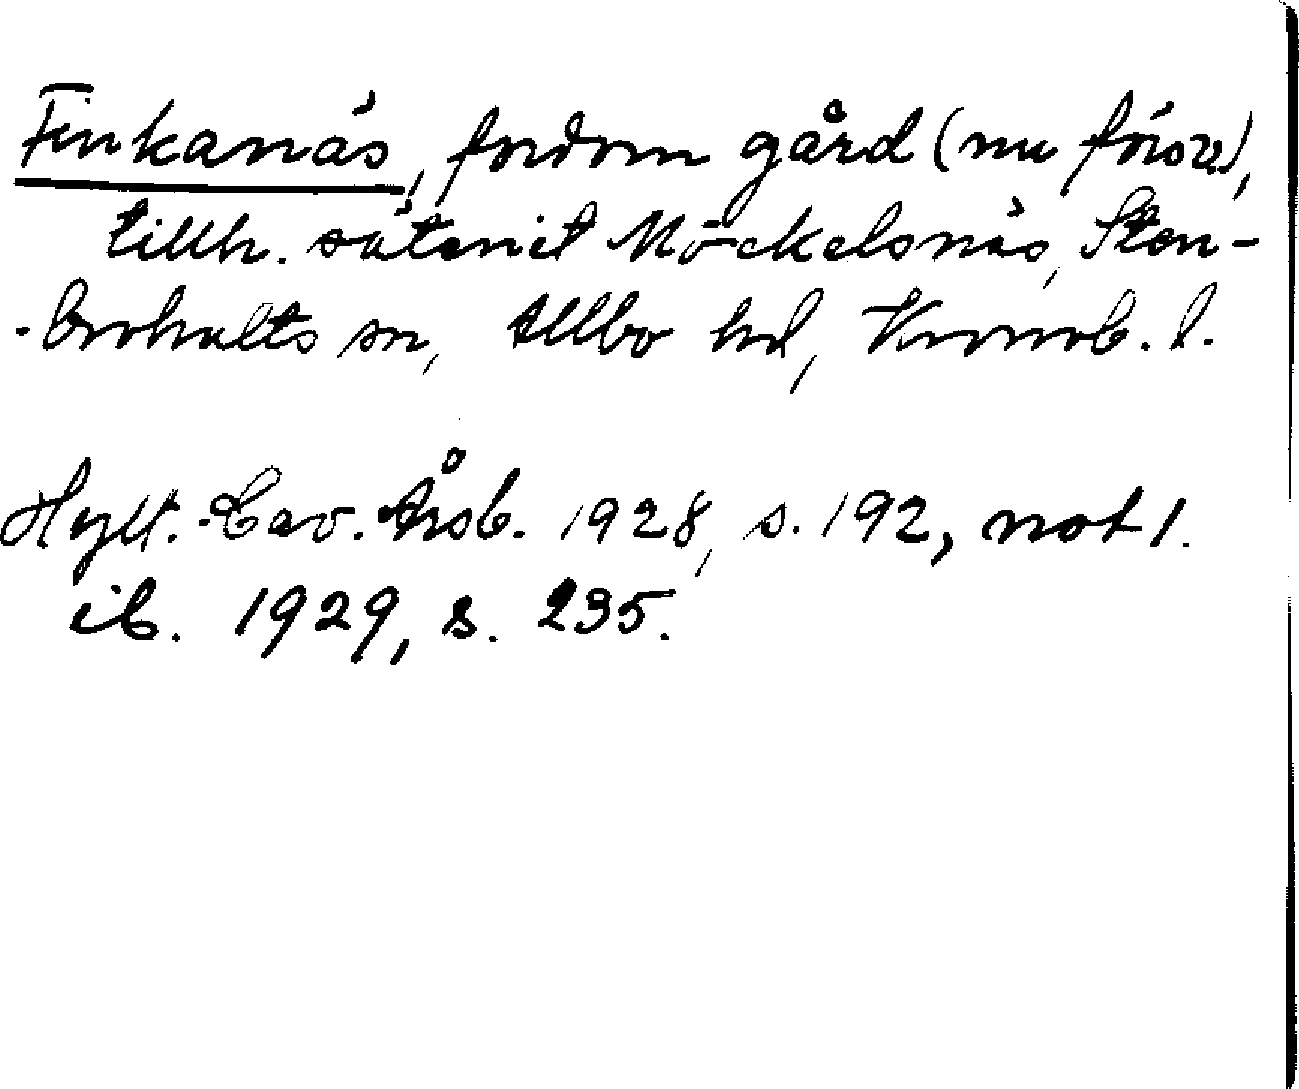 Finkanäs, fordom gård (nu försv.),
tillh. säteriet Möckelsnäs, Sten-
-brohults sn, Allbo hd, Kronob. l.
Hylt.-Cav. Årsb. 1928, s. 192, not 1.
ib. 1929, s. 235.